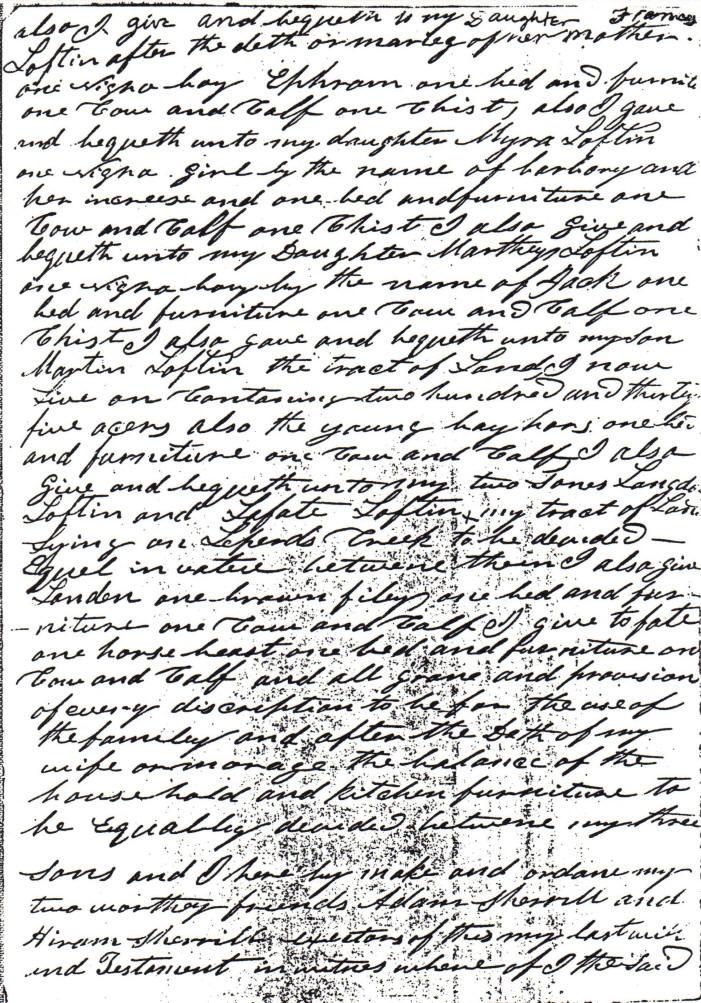 also I give and bequeth to my Daughter Frances
Loftin after the deth or marieg of her mother.
one nigro boy Ephram one bed and furnite
one Cow and Calf one Chist, also I gave
and bequeth unto my daughter Myra Loftin
one nigro girl by the name of barbory and
her increese and one bed and furniture one
Cow and Calf one Chist I also Give and
bequeth unto my Daughter Marthey Loftin
one nigro boy by the name of Jack one
bed and furniture one Cow and Calf one
Chist I also gave and bequeth unto my son
Martin Loftin the tract of Land I now
Live on Contasing two hundred and thirty
five acers also the young bay hors one bed
and furniture one Cow and Calf I also
Give and bequeth unto my two Sones Langdo
Loftin and Lafate Loftin my tract of Lan
Lying on Lepends Creek to be devided —
Equel in valure betwene them I also give
Landen one brown filey one bed and fur-
niture one Cow and Calf I give to fate
one horse beast one bed and furniture on
Cow and Calf and all grane and provision
of every discription to be for the use of
the familey and after the Deth of my
wife or marage the balance of the
house hold and kitchen furniture to
be Equally devided betwene my three
sons and I here by make and ordane my
two worthey friends Adam Sherrill and
Hiram Sherrill exectors of this my last will
and Testament in witnes where of I the said